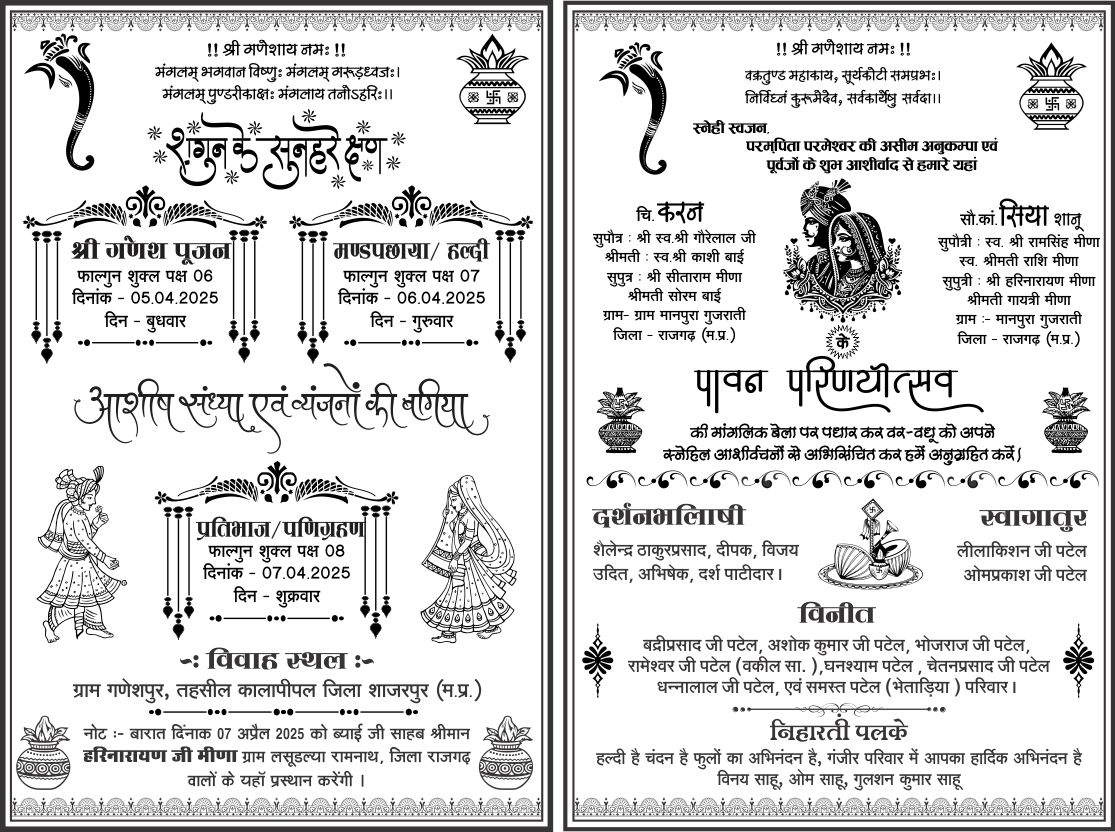 !! श्री गणेशाय नमः !!
मंगलम् भगवान विष्णुः मंगलम् गरूड़ध्वजः।
मंगलम् पुण्डरीकाक्षः मंगलाय तनोऽहरिः।।
शगुन के सुनहरे क्षण
श्री गणेश पूजन
फाल्गुन शुक्ल पक्ष 06
दिनांक - 05.04.2025
दिन - बुधवार
मण्डपछाया/ हल्दी
फाल्गुन शुक्ल पक्ष 07
दिनांक - 06.04.2025
दिन - गुरुवार
आशीष संध्या एवं व्यंजनों की बगिया
प्रतिभाज/पणिग्रहण
फाल्गुन शुक्ल पक्ष 08
दिनांक - 07.04.2025
दिन - शुक्रवार
-: विवाह स्थल :-
ग्राम गणेशपुर, तहसील कालापीपल जिला शाजरपुर (म.प्र.)
नोट :- बारात दिंनाक 07 अप्रैल 2025 को ब्याई जी साहब श्रीमान
हरिनारायण जी मीणा ग्राम लसूहल्या रामनाथ, जिला राजगढ़
वालों के यहॉ प्रस्थान करेंगी ।
!! श्री गणेशाय नमः !!
वक्रतुण्ड महाकाय, सूर्यकोटी समप्रभः।
निर्विघ्नं कुरूमैदेव, सर्वकार्येषु सर्वदा।।
स्नेही स्वजन,
परमपिता परमेश्वर की असीम अनुकम्पा एवं
पूर्वजों के शुभ आशीर्वाद से हमारे यहां
चि. करन
सुपौत्र : श्री स्व.श्री गौरेलाल जी
श्रीमती : स्व.श्री काशी बाई
सुपुत्र : श्री सीताराम मीणा
श्रीमती सोरम बाई
ग्राम- ग्राम मानपुरा गुजराती
जिला - राजगढ़ (म.प्र.)
सौ.कां. सिया शानू
सुपौत्री : स्व. श्री रामसिंह मीणा
स्व. श्रीमती राशि मीणा
सुपुत्री : श्री हरिनारायण मीणा
श्रीमती गायत्री मीणा
ग्राम :- मानपुरा गुजराती
जिला - राजगढ़ (म.प्र.)
के
पावन परिणयोत्सव
की मांगलिक बेला पर पधार कर वर-वधू को अपने
स्नेहिल आशीर्वचनों से अभिसिंचित कर हमें अनुग्रहित करें।
दर्शनभलािषी
शैलेन्द्र ठाकुरप्रसाद, दीपक, विजय
उदित, अभिषेक, दर्श पाटीदार ।
स्वागातुर
लीलाकिशन जी पटेल
ओमप्रकाश जी पटेल
विनीत
बद्रीप्रसाद जी पटेल, अशोक कुमार जी पटेल, भोजराज जी पटेल,
रामेश्वर जी पटेल (वकील सा. ),घनश्याम पटेल , चेतनप्रसाद जी पटेल
धन्नालाल जी पटेल, एवं समस्त पटेल (भेताड़िया ) परिवार ।
निहारतीं पलके
हल्दी है चंदन है फुलों का अभिनंदन है, गंजीर परिवार में आपका हार्दिक अभिनंदन है
विनय साहू, ओम साहू, गुलशन कुमार साहू